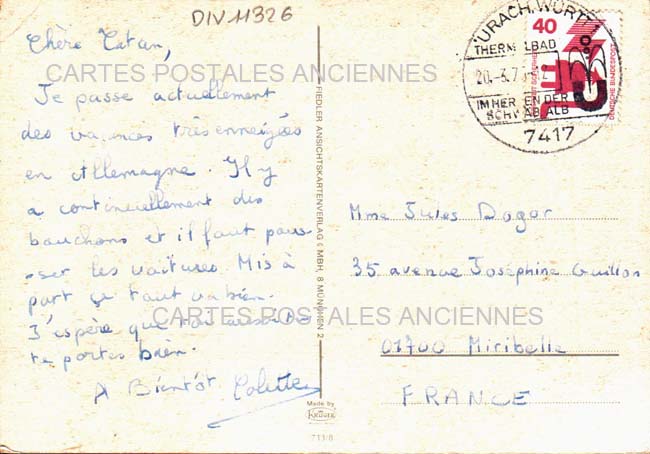 DIV 11326
Chère Tatan,
Je passe actuellement
des vacances très enneigées
en Allemagne. Il y
a continuellement des
bouchons et il faut pous-
-ser les voitures. Mis à
part ça tout va bien.
J'espère que toi aussi
te portes bien.
A Bientôt Colette
CARTES POSTALES ANCIENNES
CARTES POSTALES ANCIENNES
FIEDLER ANSICHTSKARTENVERLAG GMBH, 8 MÜNCHEN 2
Made by
KRÜGER
711/8
URACH, WÜRTT
THERMALBAD
20.-3.7
IM HERZEN DER
SCHWAB. ALB
7417
40
DEUTSCHE BUNDESPOST
Mme Jules Dagor
35 avenue Joséphine Guillon
01700 Miribelle
FRANCE